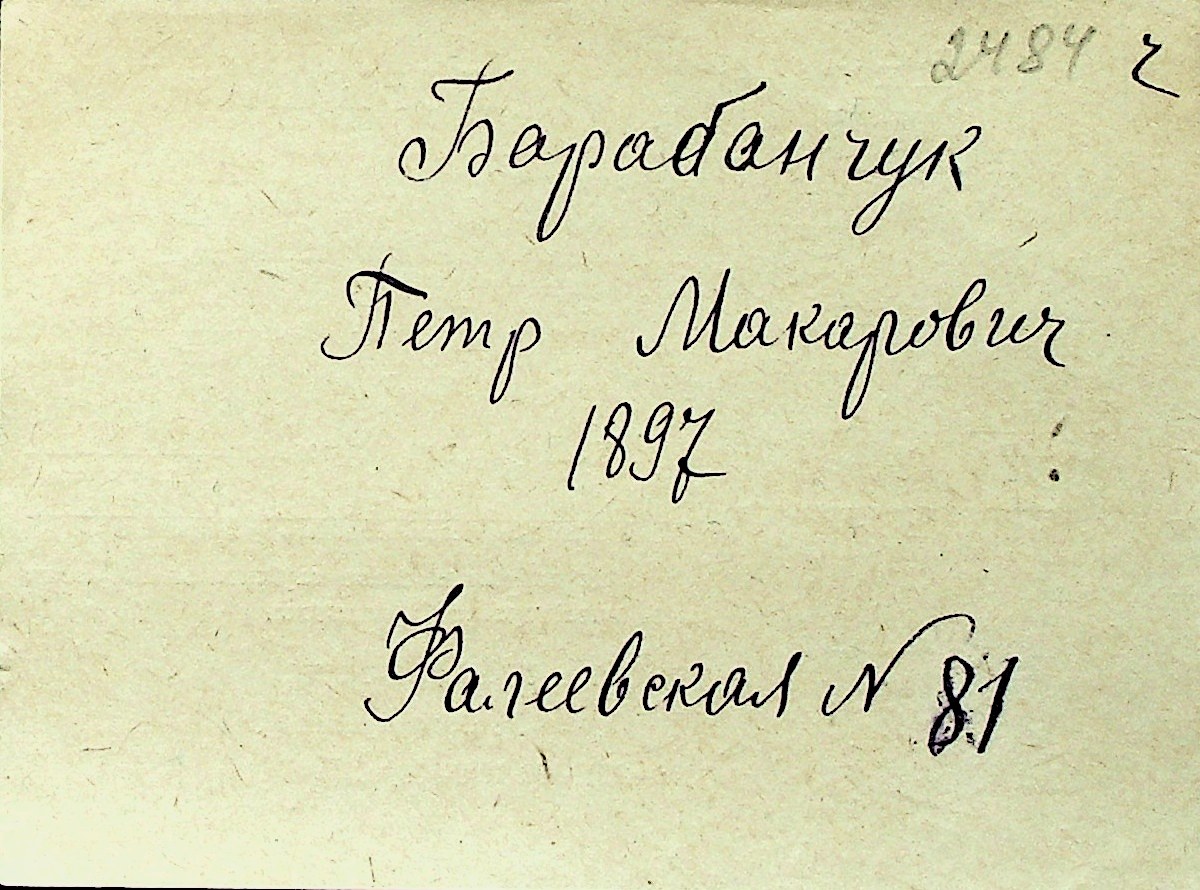 2484 ч
Барабанчук
Петр Макарович
1897
Фалеевская N 81